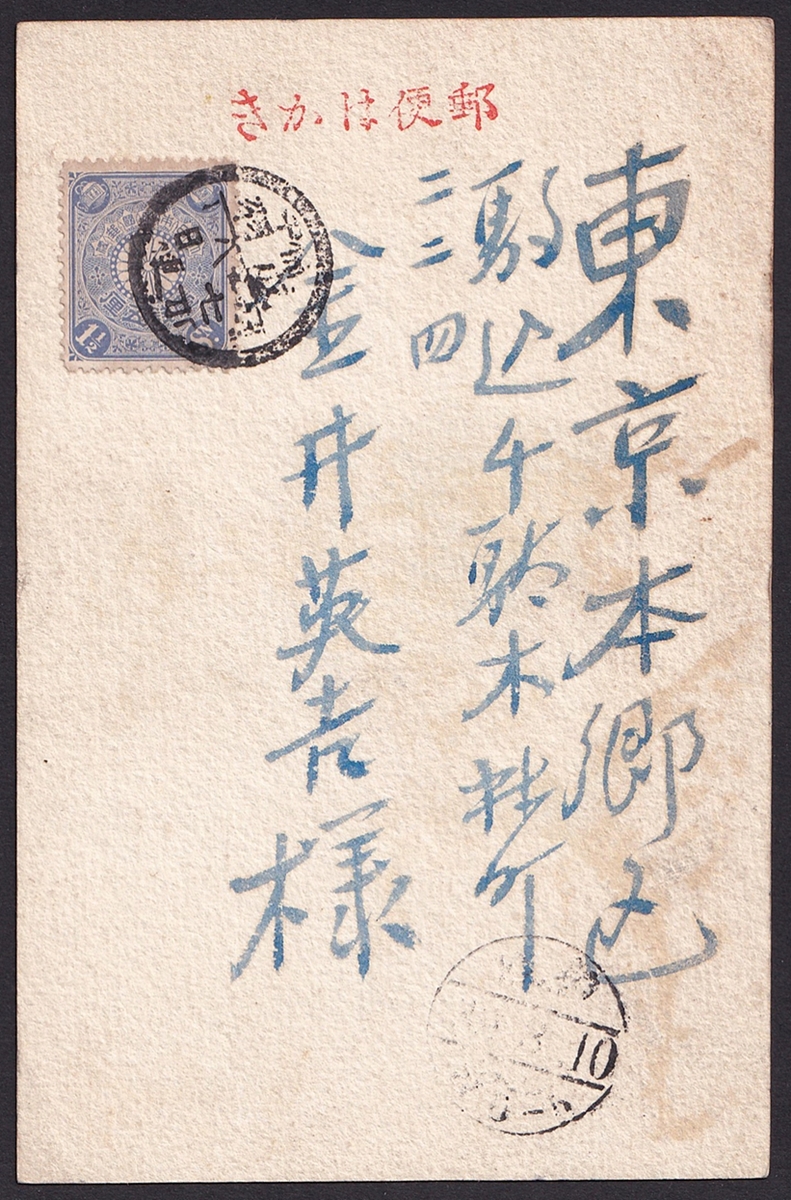 郵便はかき
東京本郷区
駒込千駄木林町
二二四
金井英吉様
1½
10